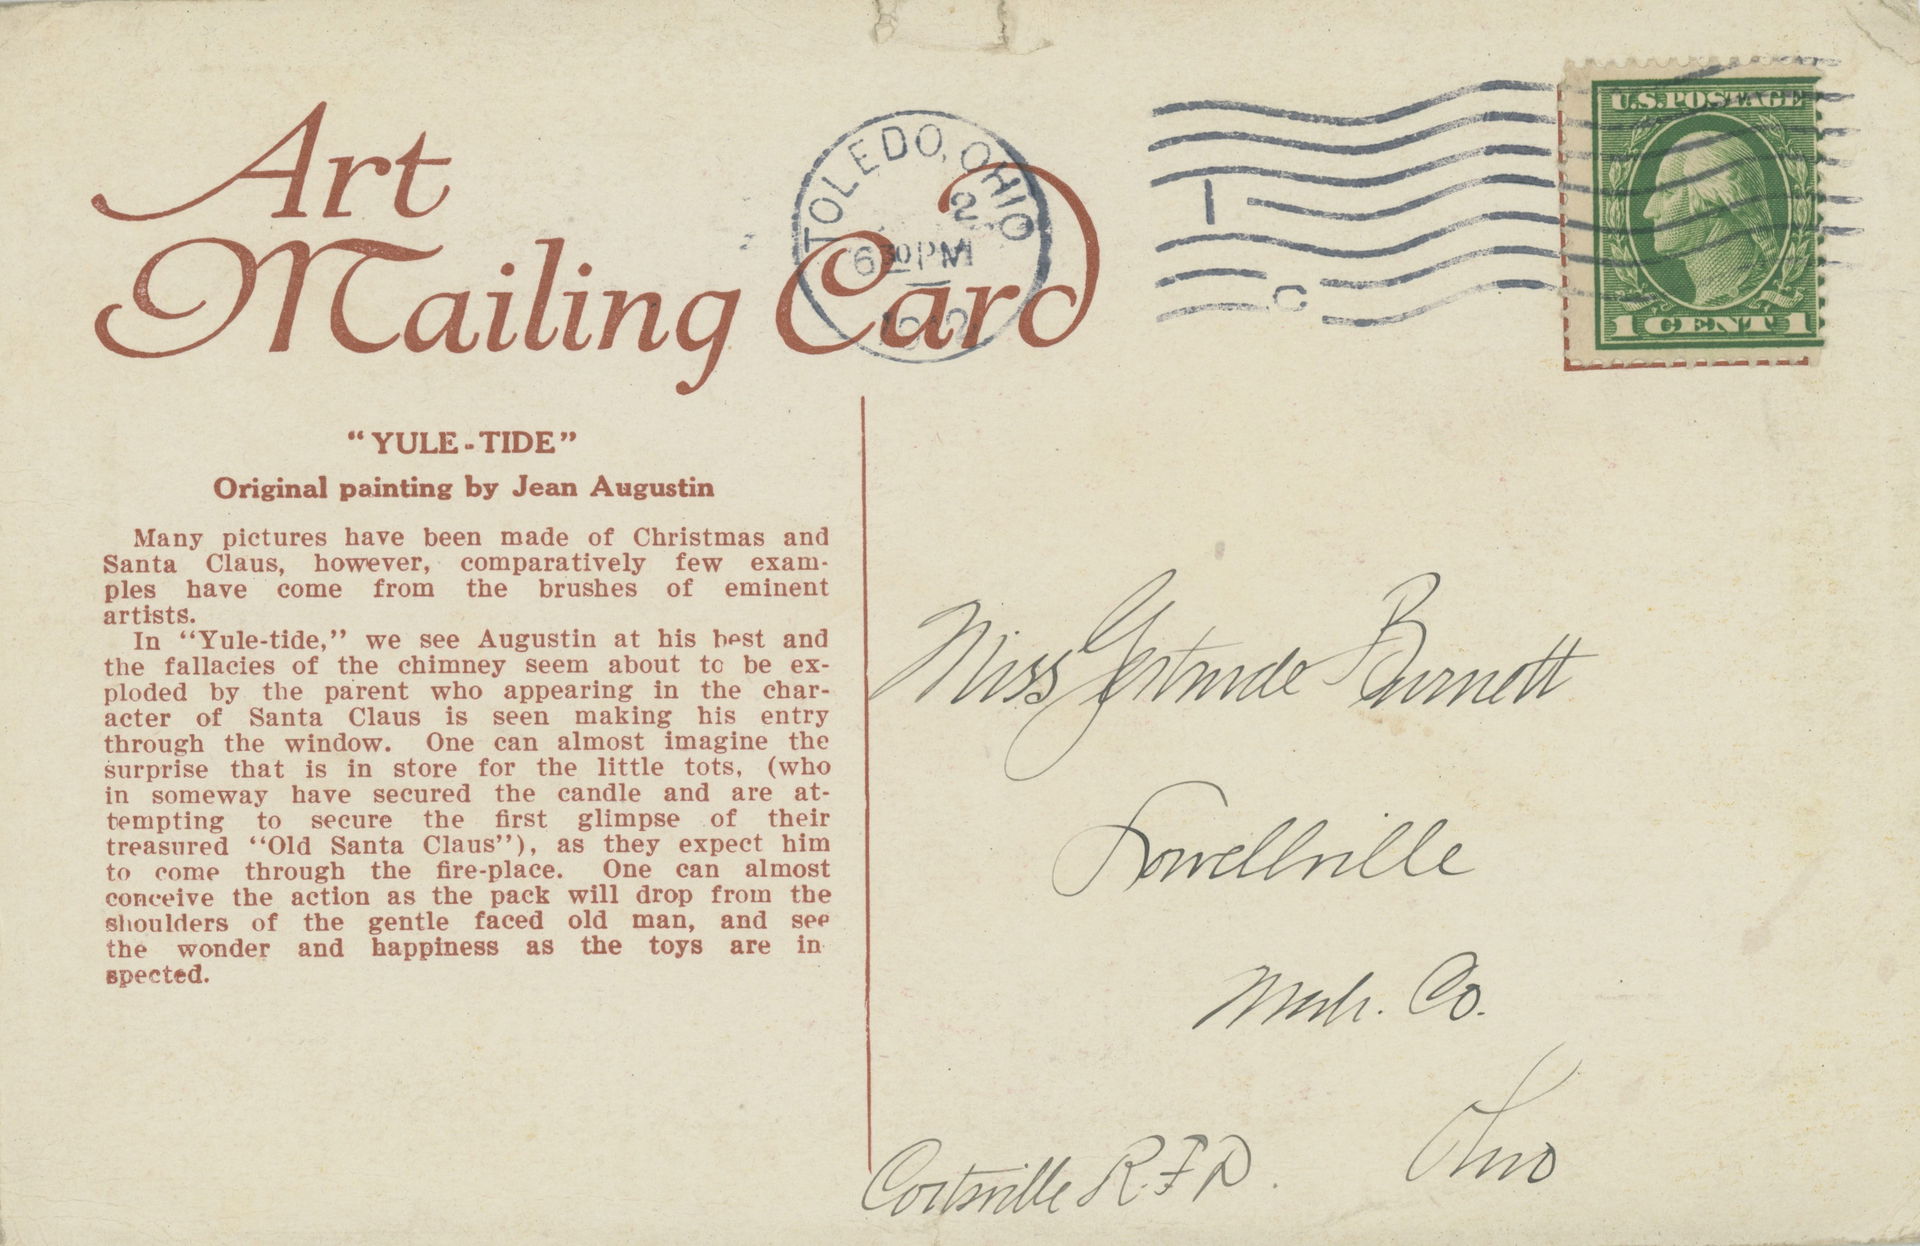 Art
Mailing Card
TOLEDO, OHIO
2
6 30 PM
1912
1
C
U.S. POSTAGE
1 CENT 1
"YULE-TIDE"
Original painting by Jean Augustin
Many pictures have been made of Christmas and
Santa Claus, however, comparatively few exam-
ples have come from the brushes of eminent
artists.
In "Yule-tide," we see Augustin at his best and
the fallacies of the chimney seem about to be ex-
ploded by the parent who appearing in the char-
acter of Santa Claus is seen making his entry
through the window. One can almost imagine the
surprise that is in store for the little tots, (who
in someway have secured the candle and are at-
tempting to secure the first glimpse of their
treasured "Old Santa Claus"), as they expect him
to come through the fire-place. One can almost
conceive the action as the pack will drop from the
shoulders of the gentle faced old man, and see
the wonder and happiness as the toys are in
spected.
Miss Gertrude Burnett
Lowellville
Mah. Co.
Ohio
Coitsville R.F.D.